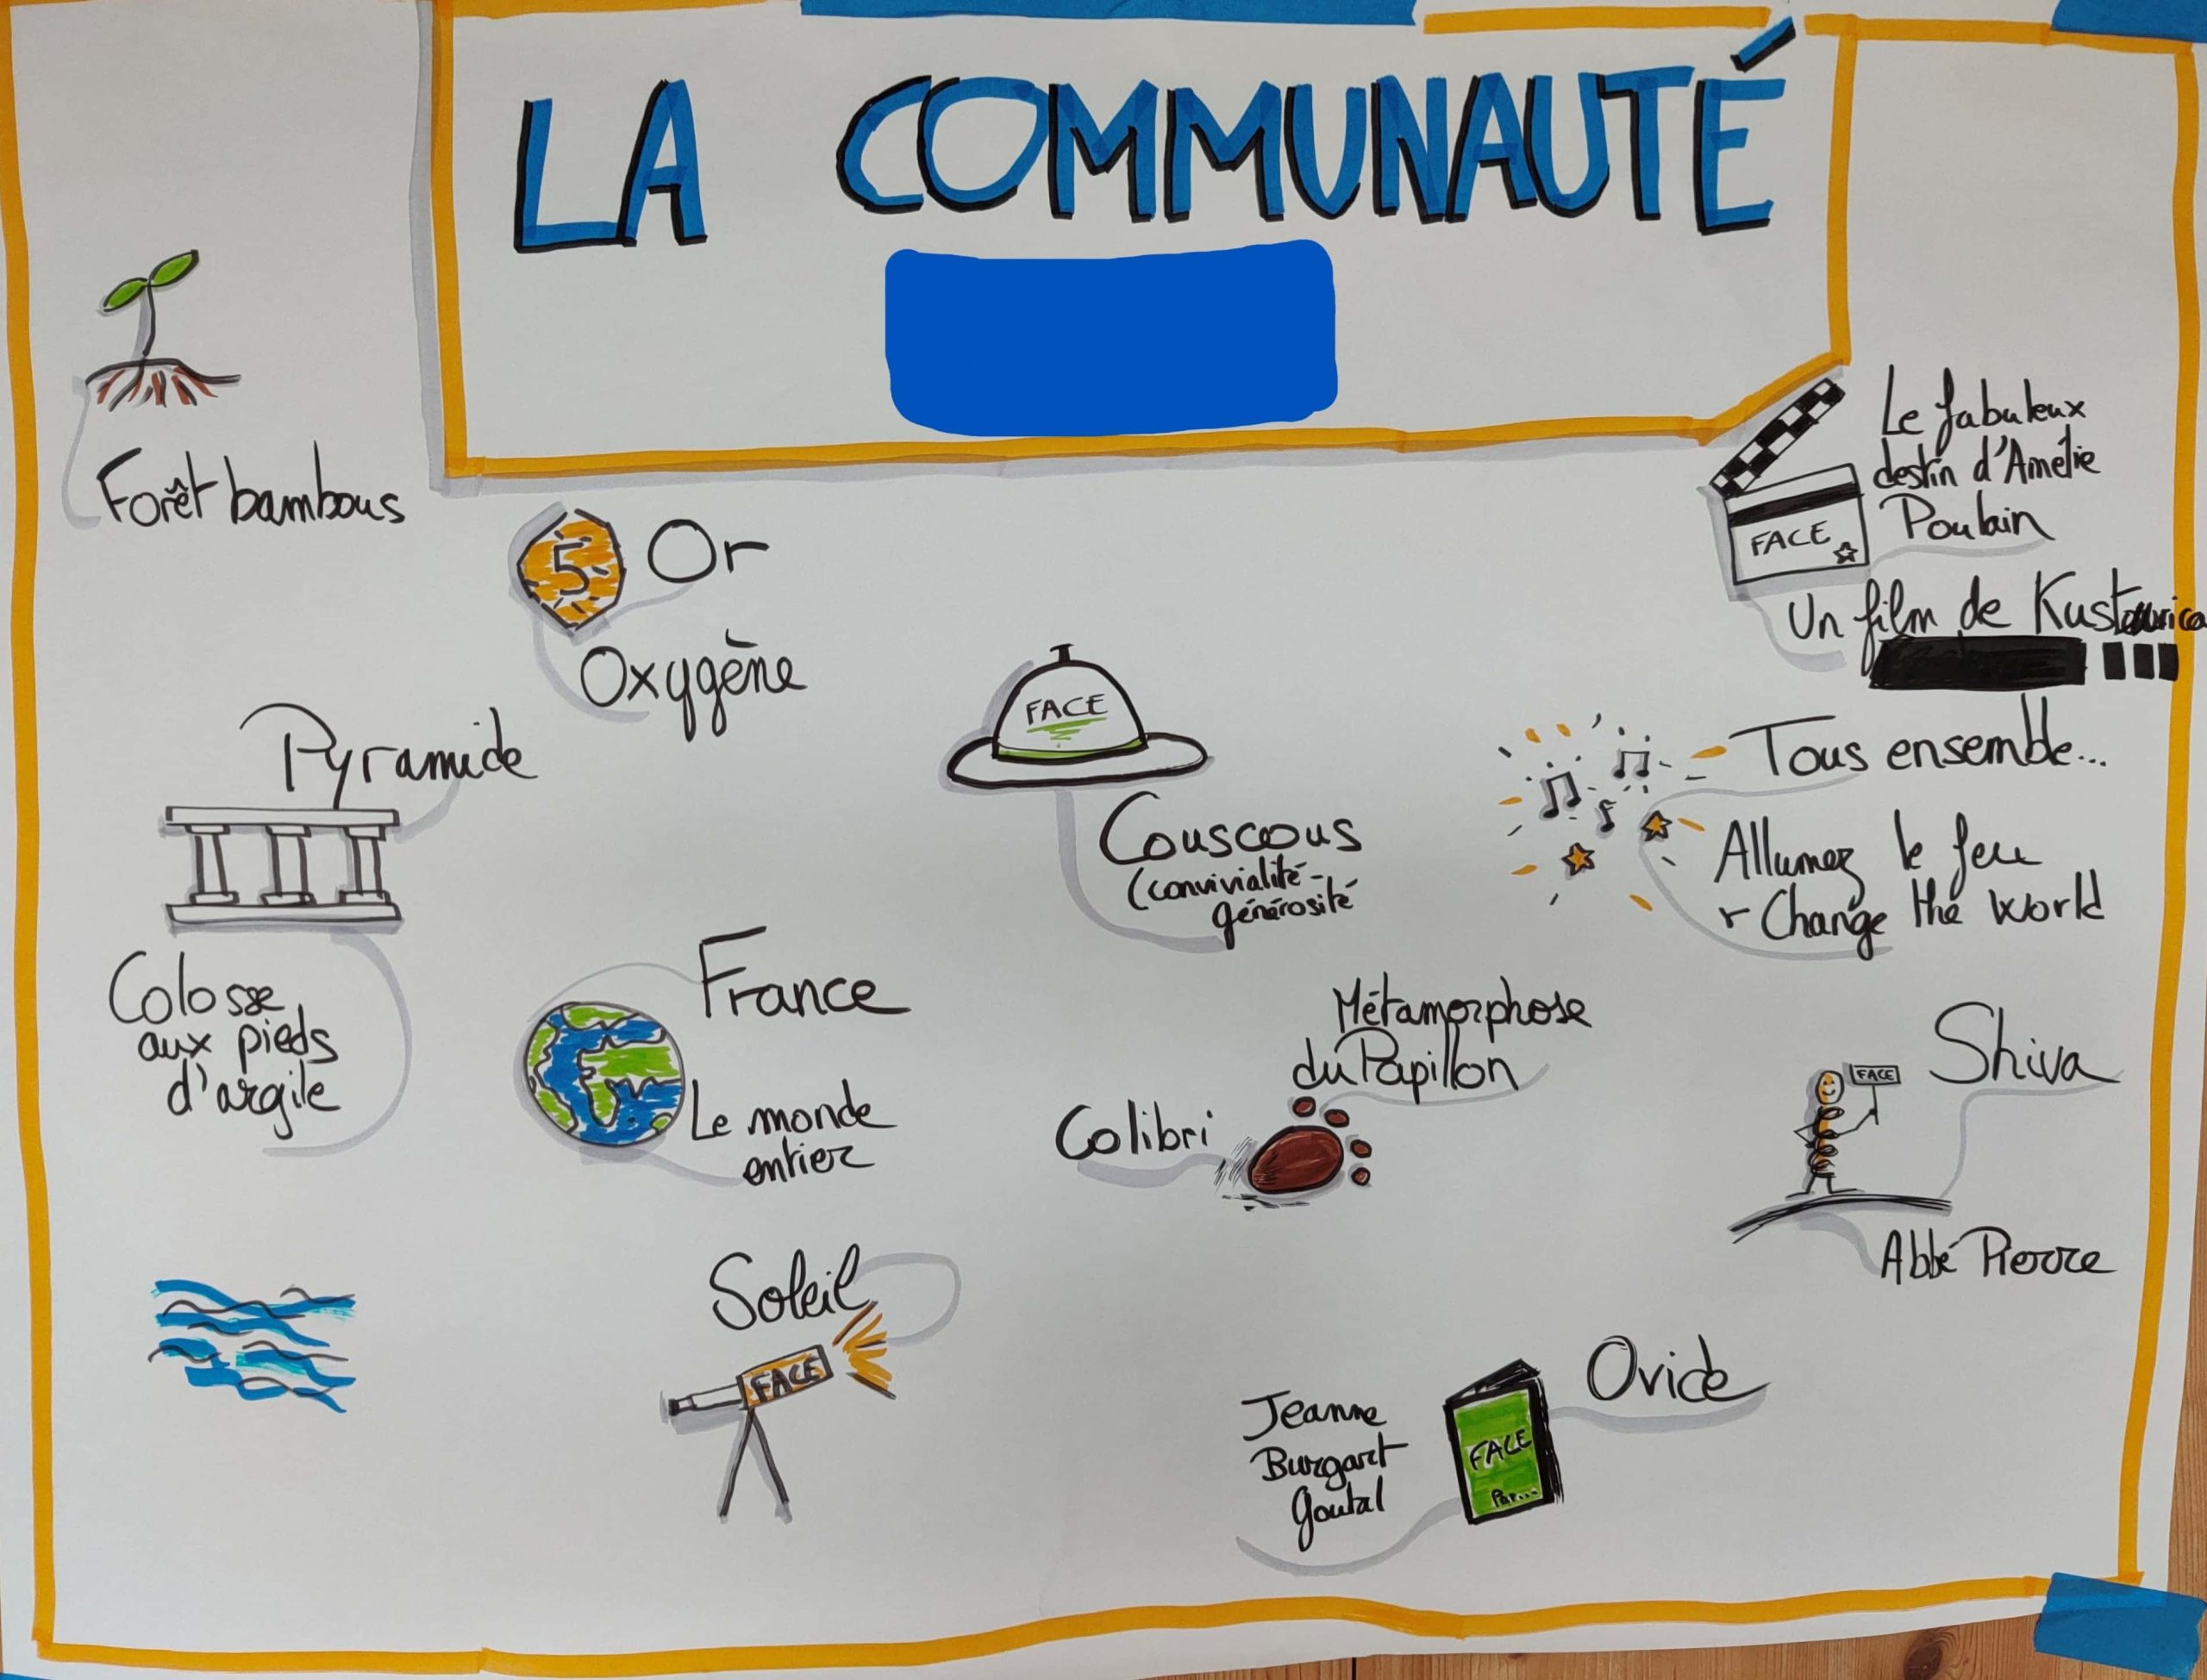 LA COMMUNAUTÉ
Forêt bambous
5
Or
Oxygène
FACE
Le fabuleux
destin d'Amélie
Poulain
Un film de Kusturica
Pyramide
Colosse
aux pieds
d'argile
FACE
Couscous
(convivialité-
générosité
Tous ensemble...
Allumez le feu
Change the world
France
Le monde
entier
Métamorphose
du Papillon
Colibri
FACE
Shiva
Abbé Pierre
Soleil
FACE
Jeanne
Burgart
Goutal
FACE
Par...
Ovide